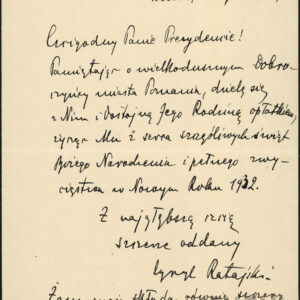 Czcigodny Panie Prezydencie!
Pamiętając o wielkodusznym Dobro-
czyńcy miasta Poznania, dzielę się
z Nim i Dostojną Jego Rodziną opłatkiem,
życząc Mu z serca szczęśliwych świąt
Bożego Narodzenia i pełnego zwy-
cięstwa w Nowym Roku 1932.
Z najgłębszą czcią
szczerze oddany
Cyryl Ratajski
Żona moja składa również szczere